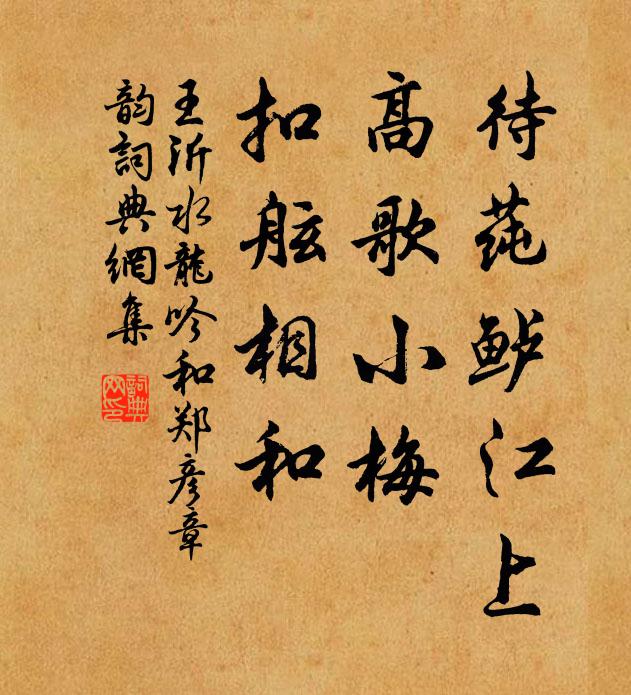 待莼鲈江上
高歌小梅
扣舷相和
王沂水龍吟和郑彦章
韵詞典網集
詞典
网印